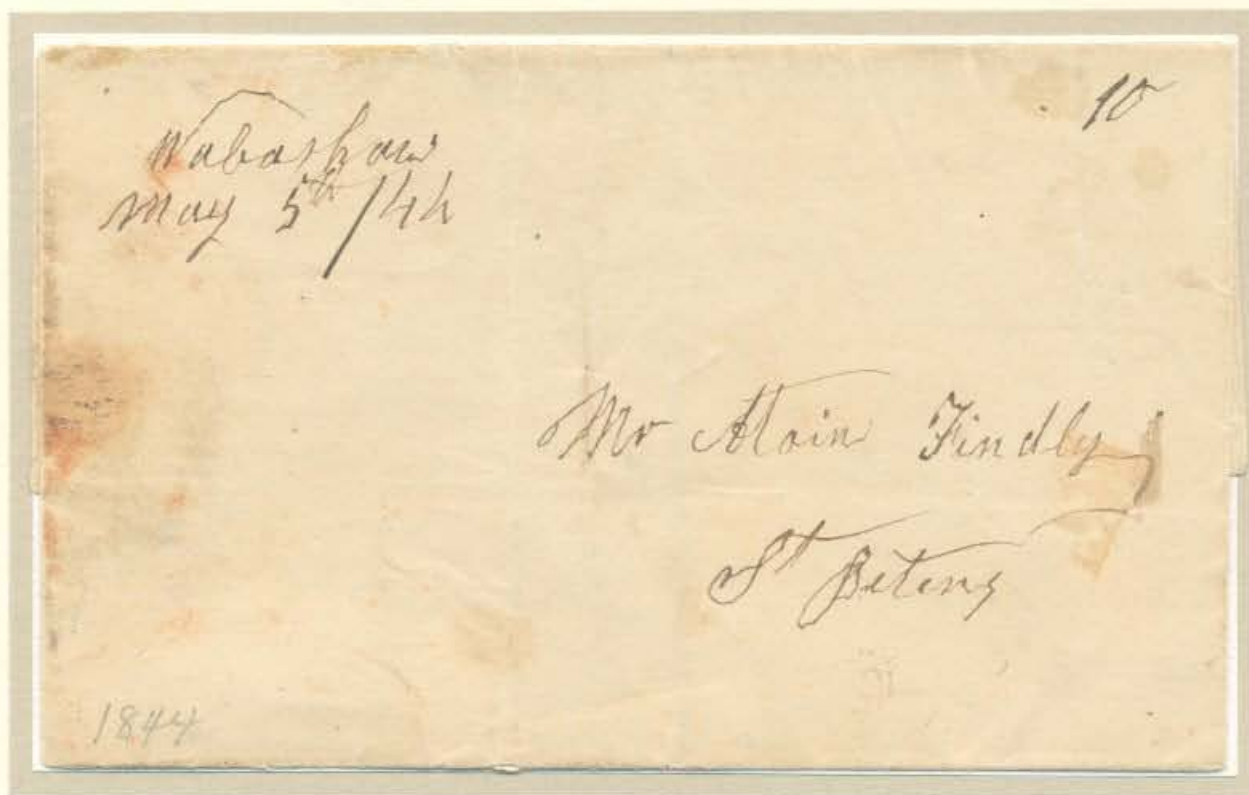 Wabashaw
May 5th /44
10
Mr Findly
St Peters
1844